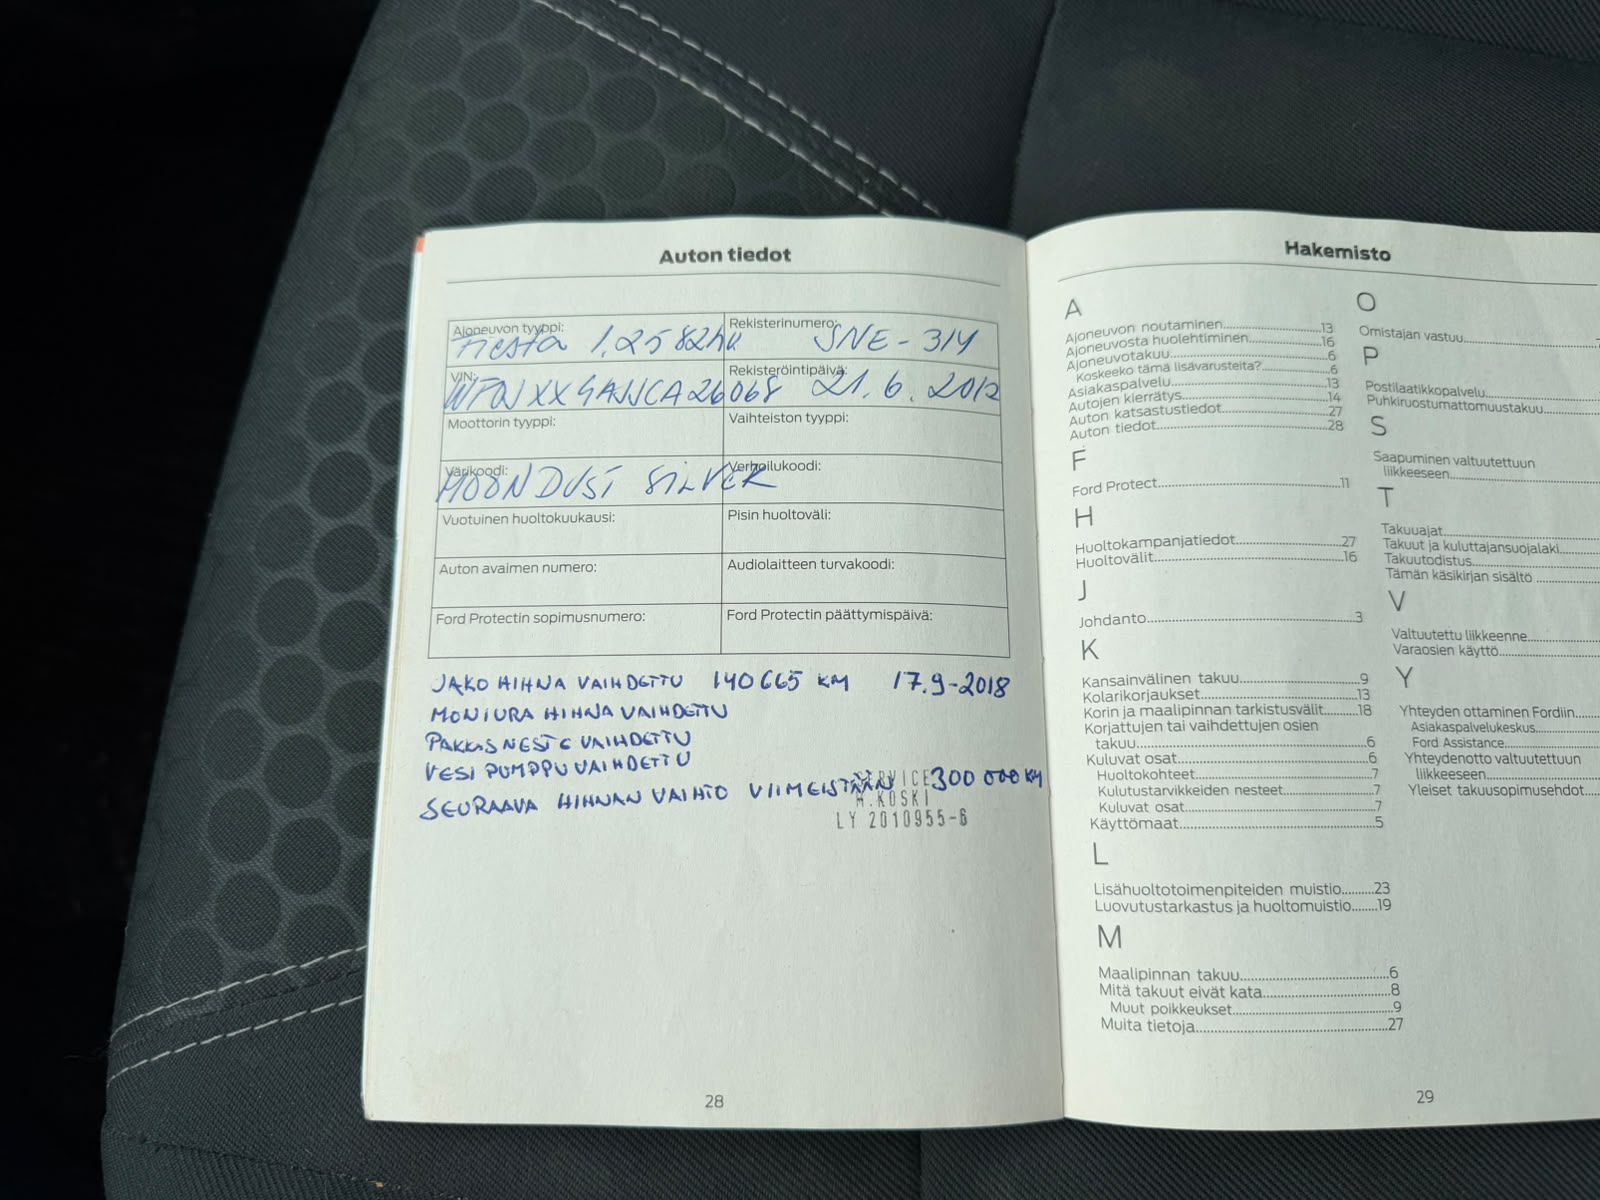 Auton tiedot
Ajoneuvon tyyppi:
Fiesta 1.25 82hv
Rekisterinumero:
SNE-314
VIN:
Rekisteröintipäivä:
21.6.2012
Moottorin tyyppi:
Vaihteiston tyyppi:
Värikoodi:
MOONDUST SILVER
Verhoilukoodi:
Vuotuinen huoltokuukausi:
Pisin huoltoväli:
Auton avaimen numero:
Audiolaitteen turvakoodi:
Ford Protectin sopimusnumero:
Ford Protectin päättymispäivä:
JAKO HIHNA VAIHDETTU 140665 KM 17.9-2018
MONIURA HIHNA VAIHDETTU
PAKKASNESTE VAIHDETTU
VESI PUMPPU VAIHDETTU
SEURAAVA HIHNAN VAIHTO VIIMEISTÄÄN 300 000 KM
SERVICE
M.KOSKI
LY 2010955-6
28
Hakemisto
A
Ajoneuvon noutaminen 13
Ajoneuvosta huolehtiminen 16
Ajoneuvotakuu 6
Koskeeko tämä lisävarusteita? 6
Asiakaspalvelu 13
Autojen kierrätys 14
Auton katsastustiedot 27
Auton tiedot 28
F
Ford Protect 11
H
Huoltokampanjatiedot 27
Huoltovälit 16
J
Johdanto 3
K
Kansainvälinen takuu 9
Kolarikorjaukset 13
Korin ja maalipinnan tarkistusvälit 18
Korjattujen tai vaihdettujen osien
takuu 6
Kuluvat osat 6
Huoltokohteet 7
Kulutustarvikkeiden nesteet 7
Kuluvat osat 7
Käyttömaat 5
L
Lisähuoltotoimenpiteiden muistio 23
Luovutustarkastus ja huoltomuistio 19
M
Maalipinnan takuu 6
Mitä takuut eivät kata 8
Muut poikkeukset 9
Muita tietoja 27
O
Omistajan vastuu
P
Postilaatikkopalvelu
Puhkiruostumattomuustakuu
S
Saapuminen valtuutettuun
liikkeeseen
T
Takuuajat
Takuut ja kuluttajansuojalaki
Takuutodistus
Tämän käsikirjan sisältö
V
Valtuutettu liikkeenne
Varaosien käyttö
Y
Yhteyden ottaminen Fordiin
Asiakaspalvelukeskus
Ford Assistance
Yhteydenotto valtuutettuun
liikkeeseen
Yleiset takuusopimusehdot
29